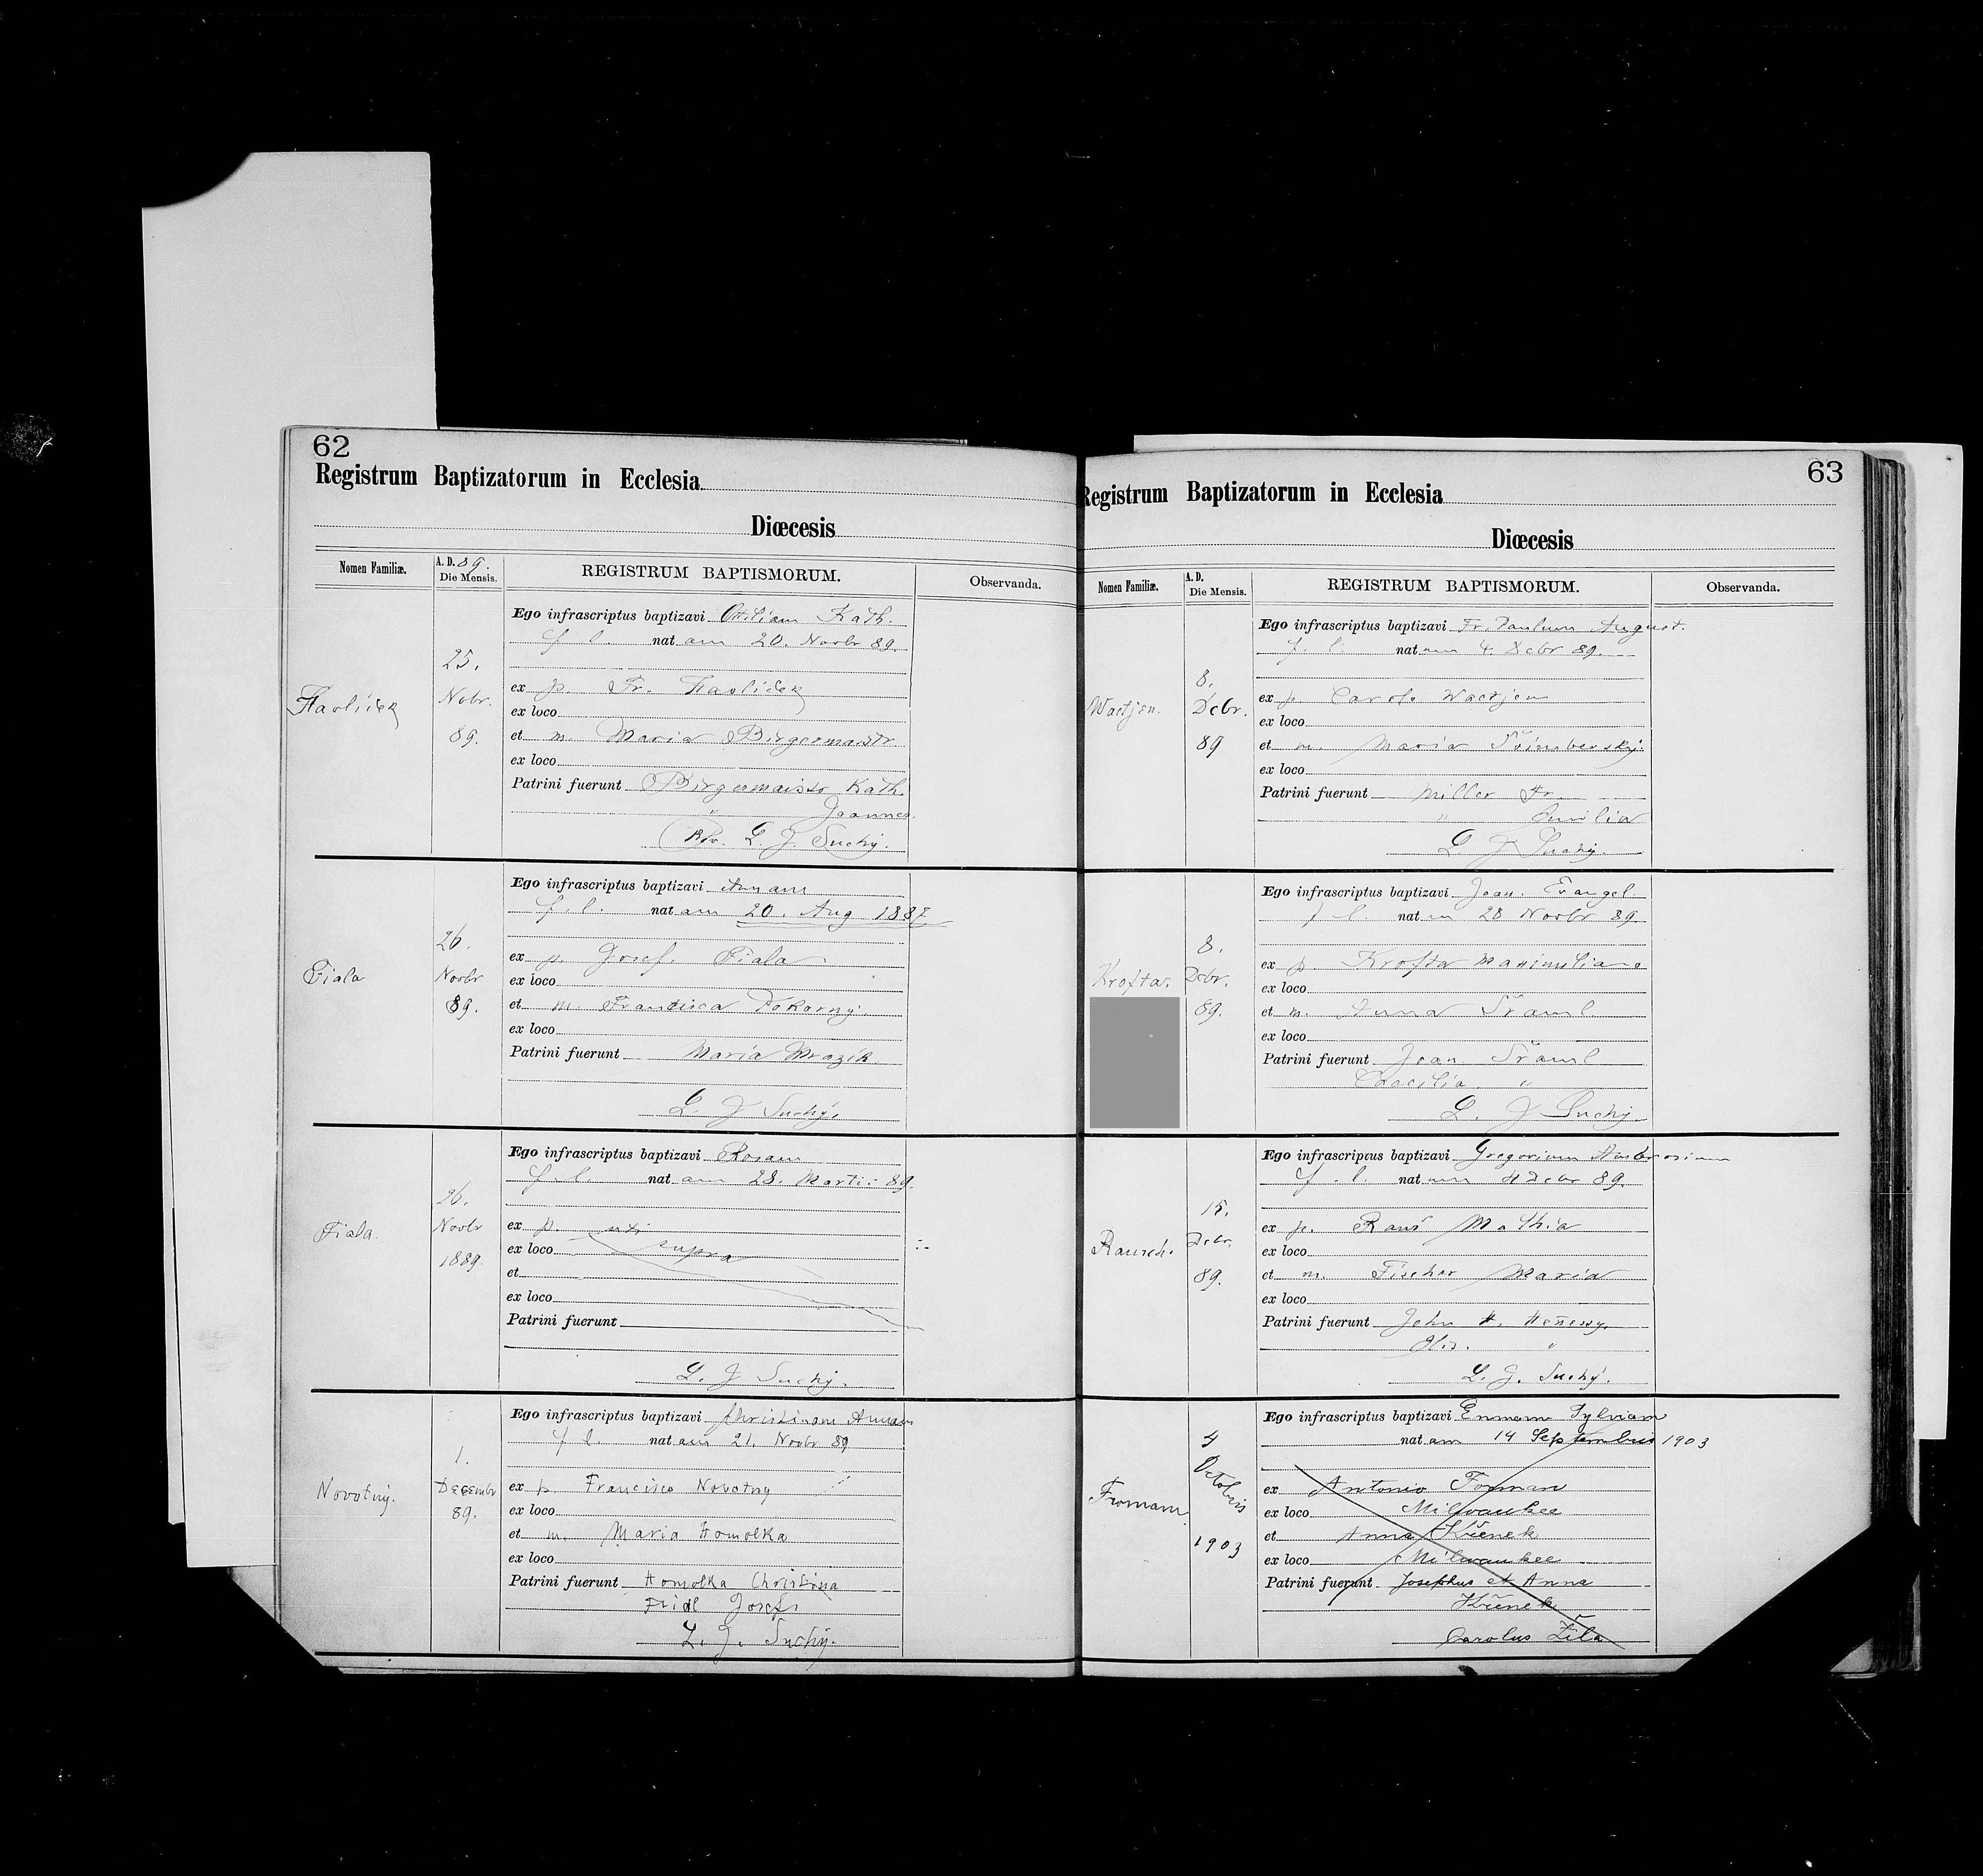 62
Registrum Baptizatorum in Ecclesia
Diœcesis
Nomen Familiæ.
A. D. 89.
Die Mensis.
REGISTRUM BAPTISMORUM.
Observanda.
Havlíček
25.
Nobr.
89.
Ego infrascriptus baptizavi Ottiliam Kath.
f. l. nat am 20. Novbr 89.
ex p. Fr. Havlíček
ex loco
et m. Maria Birgermaistr
ex loco
Patrini fuerunt Birgermaistr Kath.
" Joannes
Rev. L. J. Suchý.
Fiala
26.
Novbr
89.
Ego infrascriptus baptizavi Annam
f. l. nat am 20. Aug 1887
ex p. Josef. Fiala
ex loco
et m. Francisca Pokorný.
ex loco
Patrini fuerunt Maria Mrazík
L. J Suchý.
Fiala.
26.
Novbr
1889.
Ego infrascriptus baptizavi Rosam
f. l. nat am 28. Martii 89.
ex p. uti
ex loco supra
et
ex loco
Patrini fuerunt
L. J Suchý.
Novotný.
1.
Decembr
89.
Ego infrascriptus baptizavi Christinam Annam
f l. nat am 21. Novbr 89
ex p Francisco Novotny
ex loco
et m. Maria Homolka
ex loco
Patrini fuerunt Homolka Christina
Fridl Josefs
L. J. Suchý.
63
Registrum Baptizatorum in Ecclesia
Diœcesis
Nomen Familiæ.
A. D.
Die Mensis.
REGISTRUM BAPTISMORUM.
Observanda.
Waetjen.
8.
Dcbr.
89
Ego infrascriptus baptizavi Fr. Paulum August.
f. l. nat um 4. Dcbr 89.
ex p Carolo Waetjen
ex loco
et m. Maria
ex loco
Patrini fuerunt Miller Fr.
" Emilia
L. J Suchý.
Krofta.
8.
Dcbr.
89.
Ego infrascriptus baptizavi Joan. Evangel.
f l. nat m 28 Novbr 89.
ex p. Krofta Maximiliano
ex loco
et m. Anna Šraml
ex loco
Patrini fuerunt Joan. Šraml
Caecilia "
L. J Suchý.
Rausch.
15.
Dcbr.
89.
Ego infrascriptus baptizavi Gregorium Ambrosium
f. l. nat um 4 Dcbr 89.
ex p. Rauš Mathia
ex loco
et m. Fischer Maria
ex loco
Patrini fuerunt John H. Heñessy.
"
L. J. Suchý.
Fromam
4
Octobris
1903
Ego infrascriptus baptizavi Emmam Sylviam
nat am 14 Septembris 1903
ex Antonio Forman
ex loco Milwaukee
et Anna Křenek
ex loco Milwaukee
Patrini fuerunt Josephus et Anna
Křenek
Carolus Žila